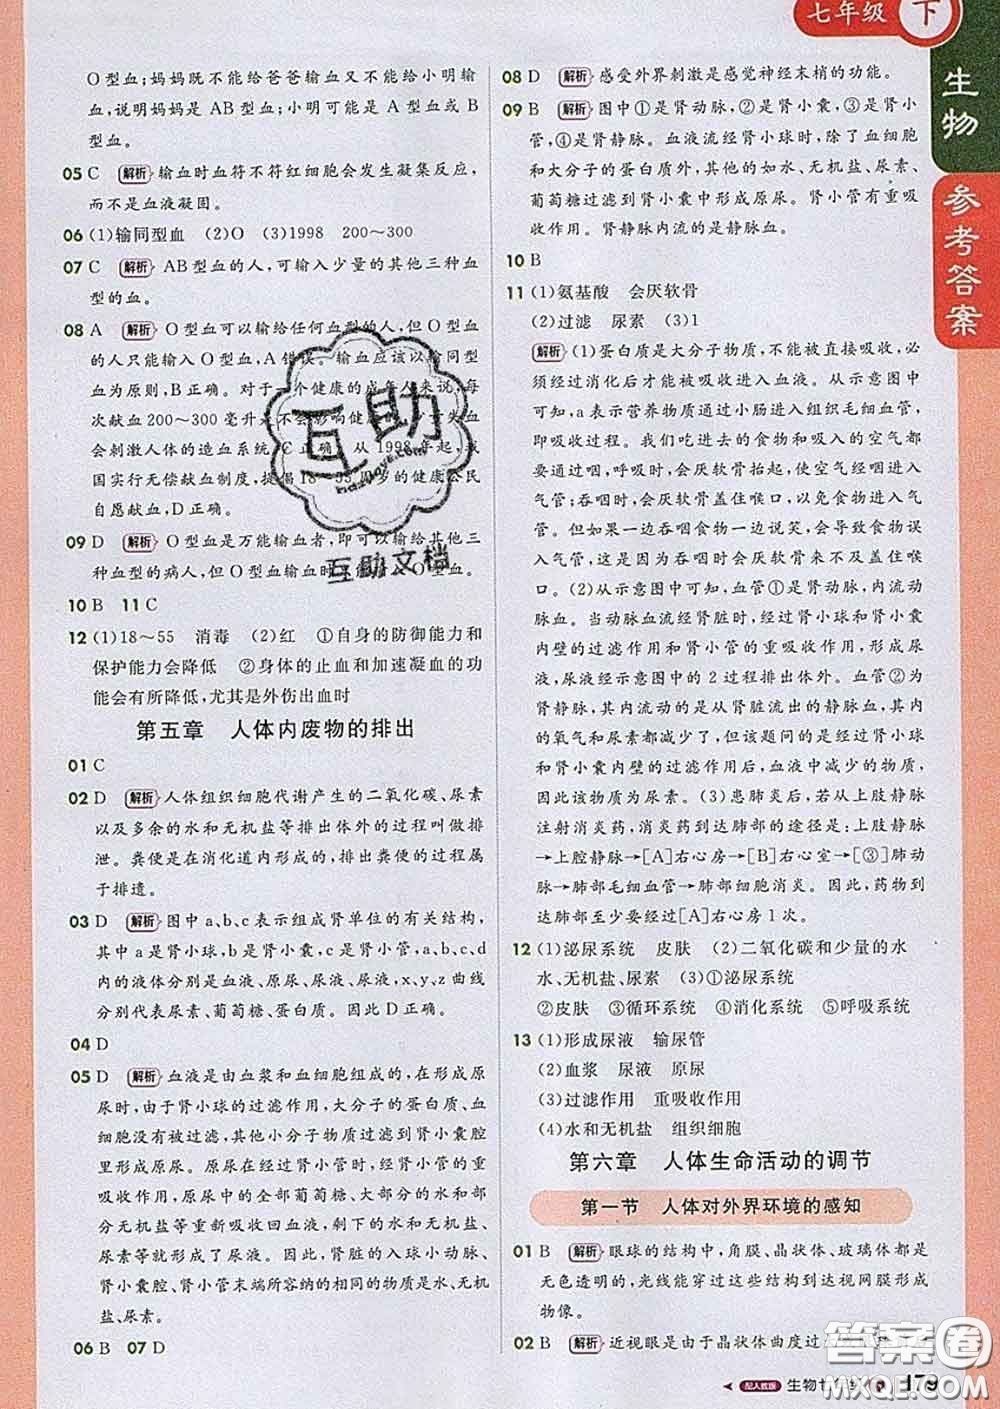 七年级 下
生物
参考答案
O型血;妈妈既不能给爸爸输血又不能给小明输
血,说明妈妈是 AB型血;小明可能是 A 型血或 B
型血。
05 C 解析 输血时血符不符红细胞会发生凝集反应,
而不是血液凝固。
06 (1)输同型血 (2)O (3)1998 200～300
07 C 解析 AB型血的人,可输入少量的其他三种血
型的血。
08 A 解析 O型血可以输给任何血型的人,但O型血
的人只能输入O型血,A错误。输血应该以输同型
血为原则,B正确。对于一个健康的成年人来说,每
次献血200～300毫升不会影响健康,少量失血
会刺激人体的造血系统,C正确。从1998年起,我
国实行无偿献血制度,提倡18～55周岁的健康公民
自愿献血,D正确。
09 D 解析 O型血是万能输血者,即可以输给其他三
种血型的病人,但O型血输血时只能输O型血。
10 B 11 C
12 (1)18～55 消毒 (2)红 ①自身的防御能力和
保护能力会降低 ②身体的止血和加速凝血的功
能会有所降低,尤其是外伤出血时
第五章 人体内废物的排出
01 C
02 D 解析 人体组织细胞代谢产生的二氧化碳、尿素
以及多余的水和无机盐等排出体外的过程叫做排
泄。粪便是在消化道内形成的,排出粪便的过程属
于排遗。
03 D 解析 图中a、b、c表示组成肾单位的有关结构,
其中a是肾小球,b是肾小囊,c是肾小管,a、b、c、d
内的液体分别是血液、原尿、尿液、尿液,x、y、z曲线
分别代表尿素、葡萄糖、蛋白质。因此D正确。
04 D
05 D 解析 血液是由血浆和血细胞组成的,在形成原
尿时,由于肾小球的过滤作用,大分子的蛋白质、血
细胞没有被过滤,其他小分子物质过滤到肾小囊腔
里形成原尿。原尿经过肾小管时,经肾小管的重吸
收作用,原尿中的全部葡萄糖、大部分的水和部
分无机盐等重新吸收回血液,剩下的水和无机盐、
尿素等就形成了尿液。因此,肾脏的入球小动脉、
肾小囊腔、肾小管末端所容纳的相同的物质是水、无机
盐、尿素。
06 B 07 D
08 D 解析 感受外界刺激是感觉神经末梢的功能。
09 B 解析 图中①是肾动脉,②是肾小囊,③是肾小
管,④是肾静脉。血液流经肾小球时,除了血细胞
和大分子的蛋白质外,其他的如水、无机盐、尿素、
葡萄糖过滤到肾小囊中形成原尿。肾小管有重吸
收作用。肾静脉内流的是静脉血。
10 B
11 (1)氨基酸 会厌软骨
(2)过滤 尿素 (3)1
解析 (1)蛋白质是大分子物质,不能被直接吸收,必
须经过消化后才能被吸收进入血液。从示意图中
可知,a表示营养物质通过小肠进入组织毛细血管,
即吸收过程。我们吃进去的食物和吸入的空气都
要通过咽,呼吸时,会厌软骨抬起,使空气经咽进入
气管;吞咽时,会厌软骨盖住喉口,以免食物进入气
管。如果一边吞咽食物一边说笑,会导致食物误
入气管,因为吞咽时会厌软骨来不及盖住喉口。
(2)从示意图中可知,血管①是肾动脉,内流动
脉血。当动脉血流经肾脏时,经过肾小球和肾小囊
内壁的过滤作用和肾小管的重吸收作用,形成尿
液,因此尿液通过图中的2过程排出体外。血管②
是肾静脉,其内流动的是从肾脏流出的血液,血液中
的氧气和尿素都减少了,但本题问的是经过肾小球
和肾小囊内壁的过滤作用后,血液中减少的物质,
因此该物质为尿素。(3)患肺炎后,若从上肢静脉
注射消炎药,消炎药到达肺部的途径是:上肢静脉
→上腔静脉→[A]右心房→[B]右心室→[③]肺动
脉→肺部毛细血管→肺部细胞消炎。因此,药物到达
肺部至少要经过[A]右心房1次。
12 (1)泌尿系统 皮肤 (2)二氧化碳和少量的水
水、无机盐、尿素 (3)①泌尿系统
②皮肤 ③循环系统 ④消化系统 ⑤呼吸系统
13 (1)形成尿液 输尿管
(2)血浆 尿液 原尿
(3)过滤作用 重吸收作用
(4)水和无机盐 组织细胞
第六章 人体生命活动的调节
第一节 人体对外界环境的感知
01 B 解析 眼球的结构中,角膜、晶状体、玻璃体都是
无色透明的,光线能穿过这些结构到达视网膜形成
物像。
02 B 解析 近视眼是由于晶状体曲度过
配人教版 生物七年级 179
互助
互助文档
答案圈